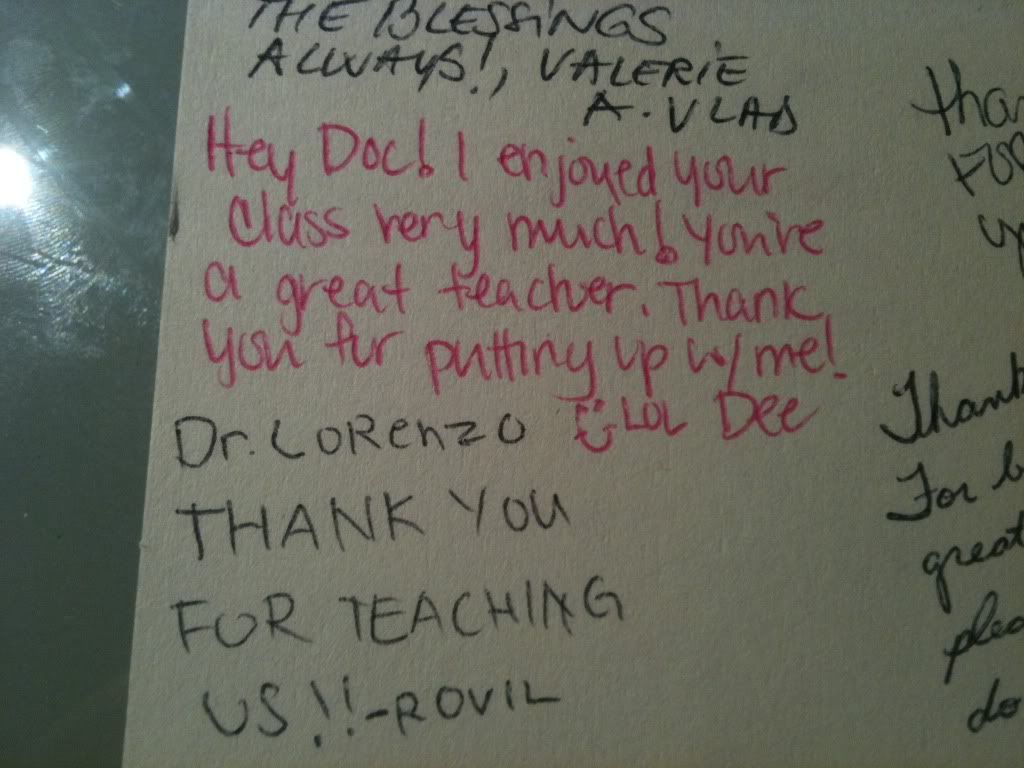 THE BLESSINGS
ALWAYS!, VALERIE
A. VLAD
Hey Doc! I enjoyed your
class very much! You're
a great teacher. Thank
you fur putting up w/ me!
LOL Dee
Dr. LORENZO
THANK YOU
FOR TEACHING
US!! - ROVIL
Thank
For b
great
plea
do